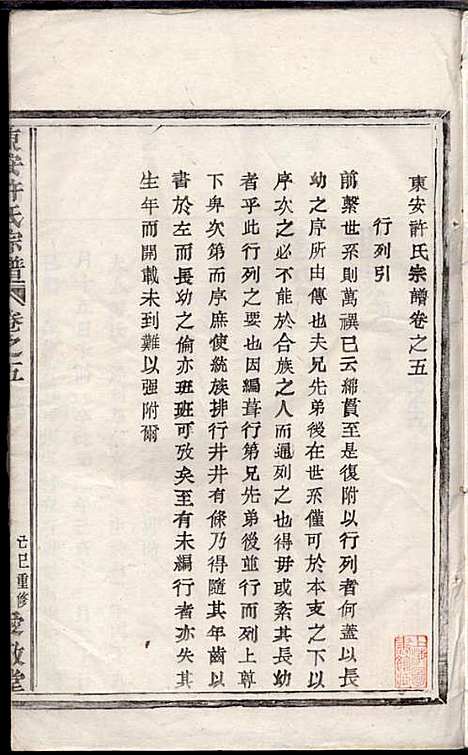 東安許氏宗譜卷之五
行列引
前繫世系則萬禩已云綿貫至是復附以行列者何蓋以長
幼之序所由傳也夫兄先弟後在世系僅可於本支之下以
序次之必不能於合族之人而遍列之也得毋或紊其長幼
者乎此行列之要也因編葺行第兄先弟後並行而列上尊
下卑次第而序庶使統族排行井井有條乃得隨其年齒以
書於左而長幼之倫亦班班可攷矣至有未編行者亦失其
生年而開載未到難以强附爾
東安許氏宗譜
卷之五
己巳重修
敘堂